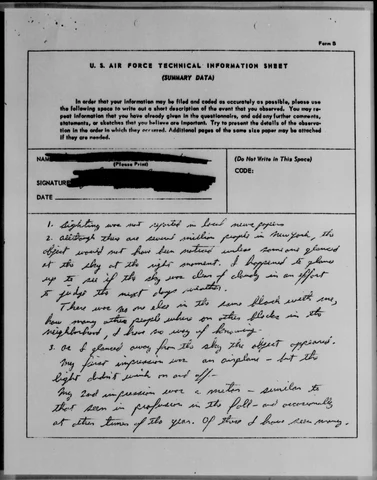 Form B
U. S. AIR FORCE TECHNICAL INFORMATION SHEET
(SUMMARY DATA)
In order that your information may be filed and coded as accurately as possible, please use
the following space to write out a short description of the event that you observed. You may re-
peat information that you have already given in the questionnaire, and add any further comments,
statements, or sketches that you believe are important. Try to present the details of the observa-
tion in the order in which they occurred. Additional pages of the same size paper may be attached
if they are needed.
NAME
(Please Print)
SIGNATURE
DATE
(Do Not Write in This Space)
CODE:
1. Sighting was not reported in local newspapers
2. Although there are several million people in New York, the
object would not have been noticed unless someone glanced
at the sky at the right moment. I happened to glance
up to see if the sky was clear of clouds in an effort
to judge the next days weather.
There was no one else in the same block with me,
how many other people where on other blocks in the
neighborhood, I have no way of knowing.
3. As I glanced away from the sky the object appeared.
My first impression was an airplane - but the
light didn't wink on and off -
My 2nd impression was a meteor - similar to
that seen in profusion in the fall - and occasionally
at other times of the year. Of these I have seen many.